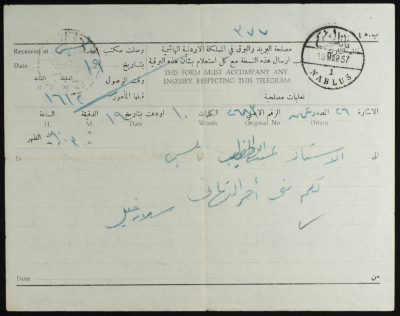 ٣٧٧
ب. ٤٥
مصلحة البريد والبرق في المملكة الاردنية الهاشمية
ارسال هذه النسخة مع كل استعلام بشأن هذه البرقية
THIS FORM MUST ACCOMPANY ANY
ENQUIRY RESPECTING THIS TELEGRAM
تعليمات مصلحية
Received at وصلت مكتب
Date بتاريخ ١٩
وقت الوصول
الدقيقة الساعة
M. H.
قبلها المأمور
NABLUS
1
الاشارة ٢٦ المصدر عمان الرقم الاصلي الكلمات ١٠ اودعت بتاريخ ١٩ الدقيقة الساعة
Origin Original No. Words Date M. H.
الظهر
To الاستاذ نابلس الى
لكم مني أحر التهاني
From من